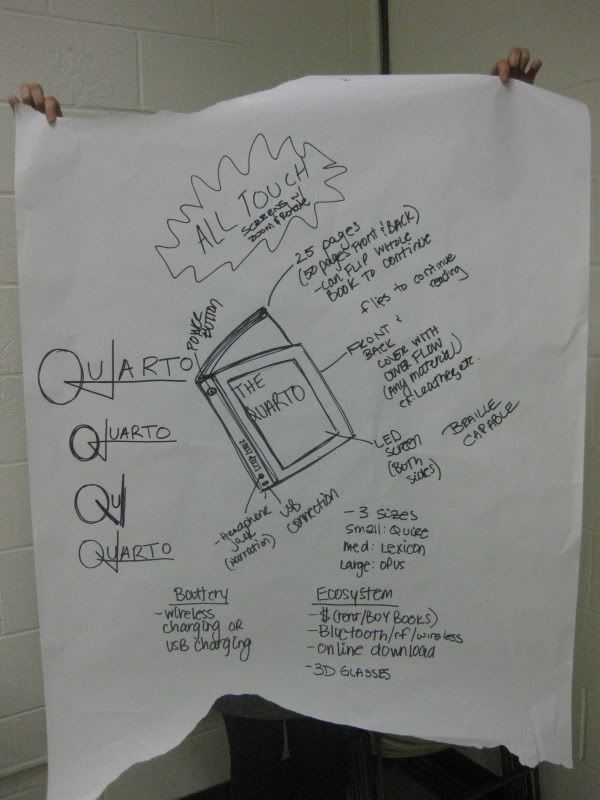 ALL TOUCH
SCREENS w/
ZOOM & ROTATE
25 pages
(50 pages Front & Back)
- can FLIP WHOLE
BOOK to continue
flips to continue
reading
POWER
BUTTON
FRONT &
BACK
COVER WITH
COVER FLOW
(Any material)
ex. Leather, etc.
QUARTO
QUARTO
QU
QUARTO
THE
QUARTO
LED
screen
(Both
sides)
BRAILLE
CAPABLE
- Headphone
jack
(narration)
USB
connection
- 3 sizes
Small: Quire
Med: Lexicon
Large: Opus
Battery
- wireless
charging or
USB charging
Ecosystem
- $ (rent/BUY BOOKS)
- Bluetooth/rf/wireless
- online download
- 3D GLASSES